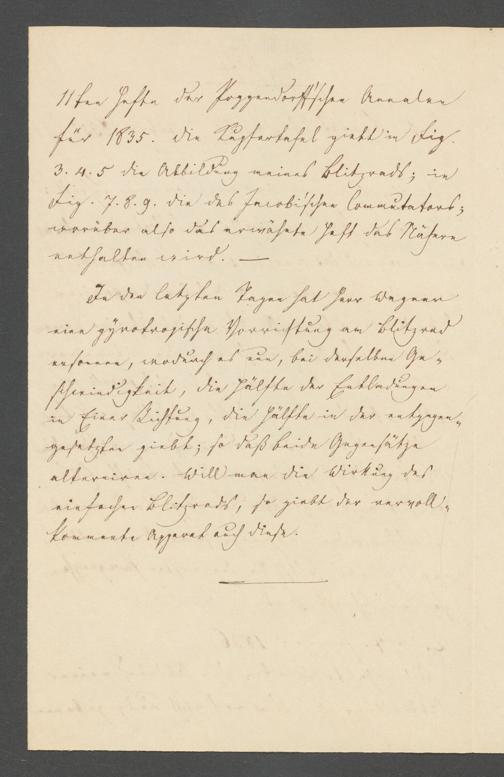 11ten Hefte der Poggendorff'schen Annalen
für 1835. die Kupfertafel giebt in Fig.
3. 4. 5 die Abbildung meines Blitzrads; in
Fig. 7. 8. 9. die des Jacobischen Commutators;
worüber also das erwähnte Heft das Nähere
enthalten wird. —
In den letzten Tagen hat Herr Wagner
eine gyrotropische Vorrichtung am Blitzrad
ersonnen, wodurch es nun, bei derselben Ge-
schwindigkeit, die Hälfte der Entladungen
in Einer Richtung, die Hälfte in der entgegen-
gesetzten giebt; so daß beide Gegensätze
alterniren. Will man die Wirkung des
einfachen Blitzrads, so giebt der vervoll-
kommnete Apparat auch diese.